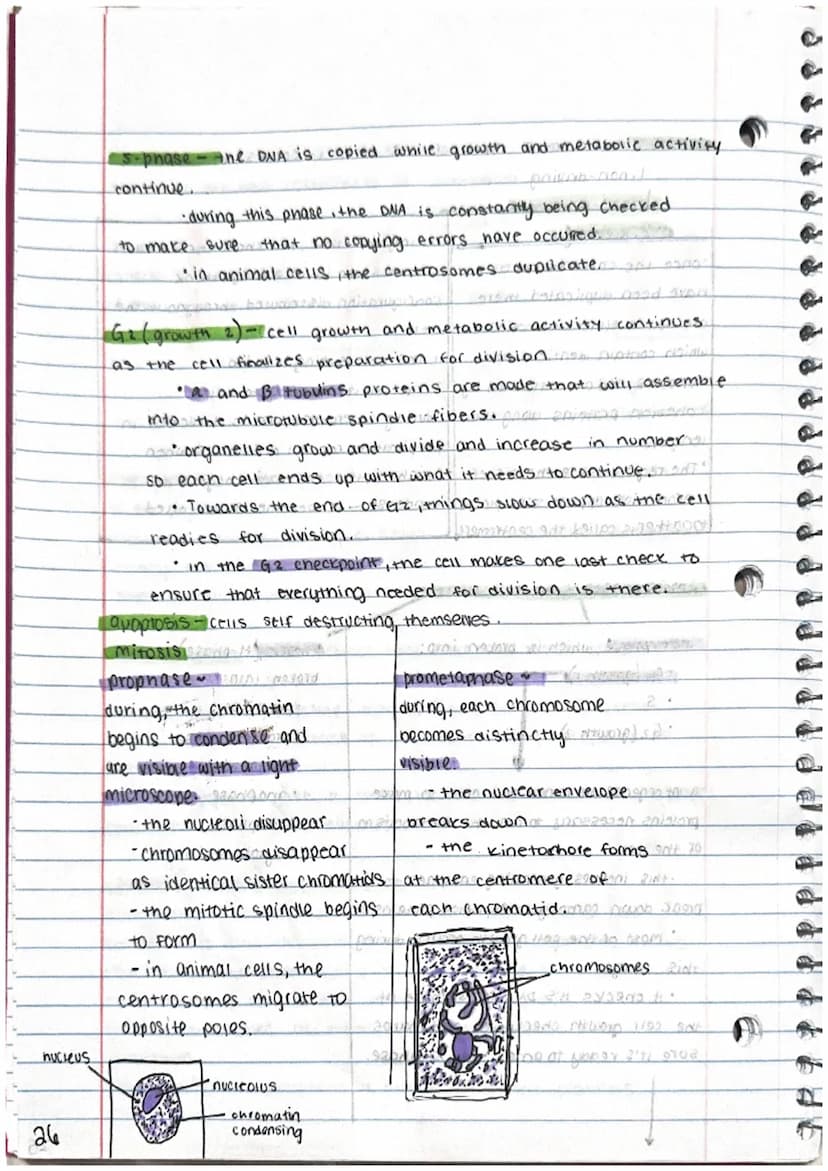 S-phase - The DNA is copied while growth and metabolic activity
continue.
· during this phase, the DNA is constantly being checked
to make sure that no copying errors have occured.
· in animal cells, the centrosomes duplicate.
G2 (growth 2) - cell growth and metabolic activity continues
as the cell finalizes preparation for division
· α and β tubulins proteins are made that will assemble
into the microtubule spindle fibers.
· organelles grow and divide and increase in number
so each cell ends up with what it needs to continue.
· Towards the end of G2, things slow down as the cell
readies for division.
· in the G2 checkpoint, the cell makes one last check to
ensure that everything needed for division is there.
apoptosis - cells self destructing themselves.
mitosis
prophase ~
during, the chromatin
begins to condense and
are visible with a light
microscope.
- the nucleoli disappear
- chromosomes disappear
as identical sister chromatids
- the mitotic spindle begins
to form
- in animal cells, the
centrosomes migrate to
opposite poles.
nucleus
nucleolus
chromatin
condensing
prometaphase ~
during, each chromosome
becomes distinctly
visible.
- the nuclear envelope
breaks down
- the kinetochore forms
at the centromere of
each chromatid.
chromosomes
26